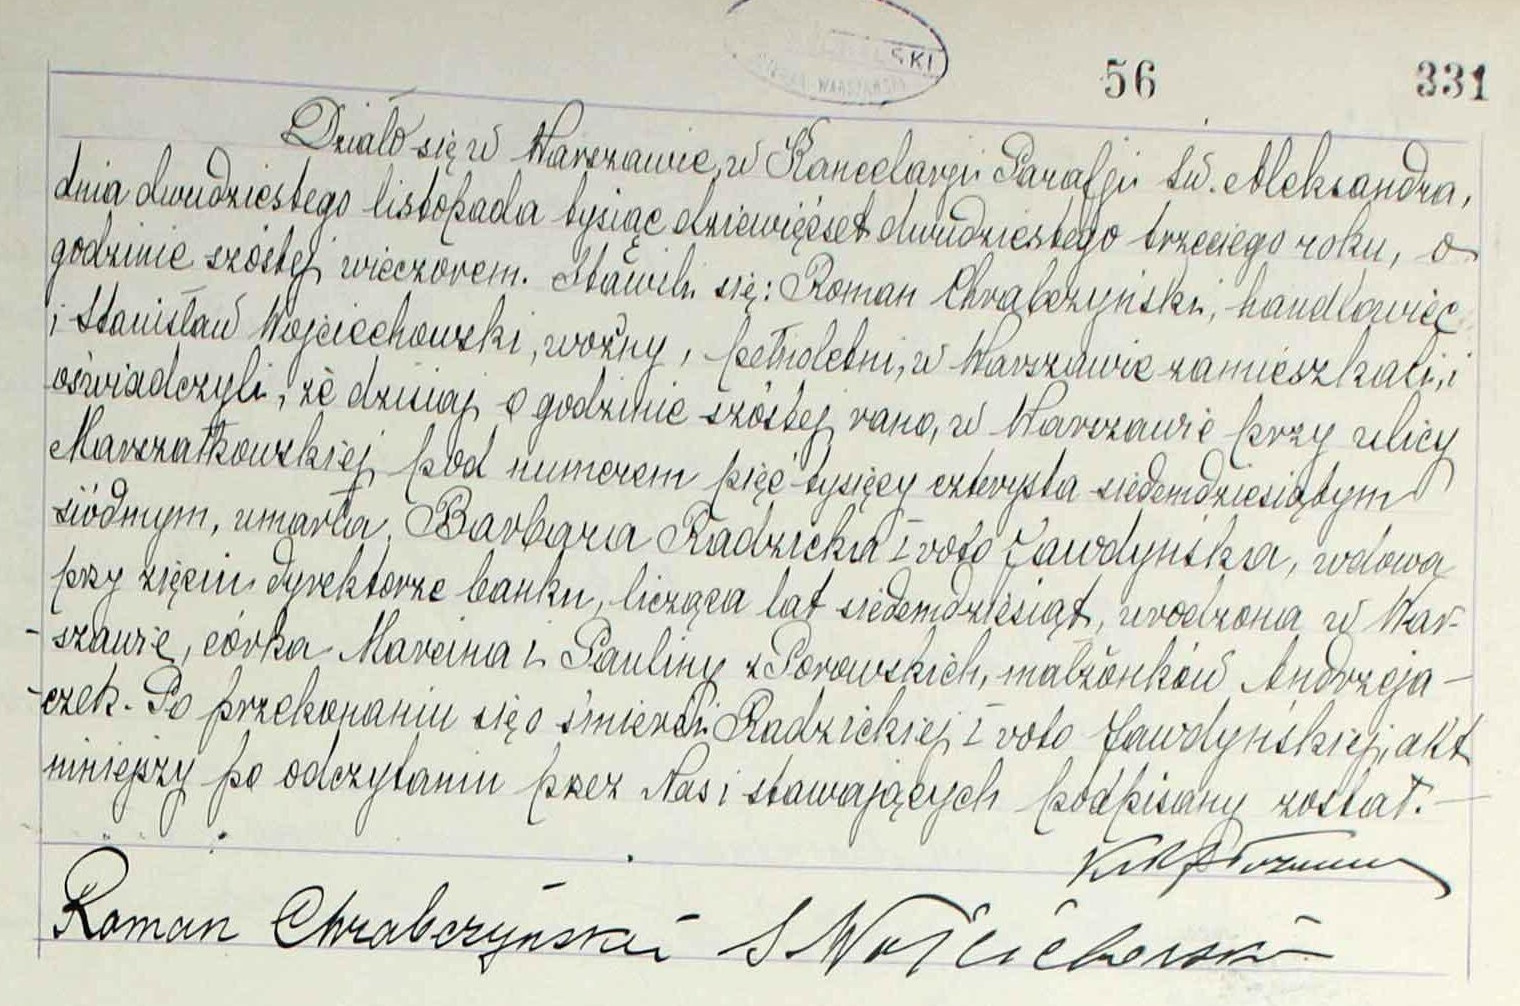 SKI
WARSZAWSKA
56 331
Działo się w Warszawie, w Kancelarji Parafji św. Aleksandra,
dnia dwudziestego listopada tysiąc dziewięćset dwudziestego trzeciego roku, o
godzinie szóstej wieczorem. Stawili się: Roman Chrabczyński, handlowiec
i Stanisław Wojciechowski, woźny, pełnoletni, w Warszawie zamieszkali, i
oświadczyli, że dzisiaj o godzinie szóstej rano, w Warszawie przy ulicy
Marszałkowskiej pod numerem pięć tysięcy czterysta siedemdziesiątym
siódmym, umarła Barbara Radzicka I voto Jawdyńska, wdowa
przy zięciu dyrektorze banku, licząca lat siedemdziesiąt, urodzona w War-
-szawie, córka Marcina i Pauliny z Porowskich, małżonków Andrzeja-
-czek. Po przekonaniu się o śmierci Radzickiej I voto Jawdyńskiej, akt
niniejszy po odczytaniu przez Nas i stawających podpisany został. —
Roman Chrabczyński S Wojciechowski